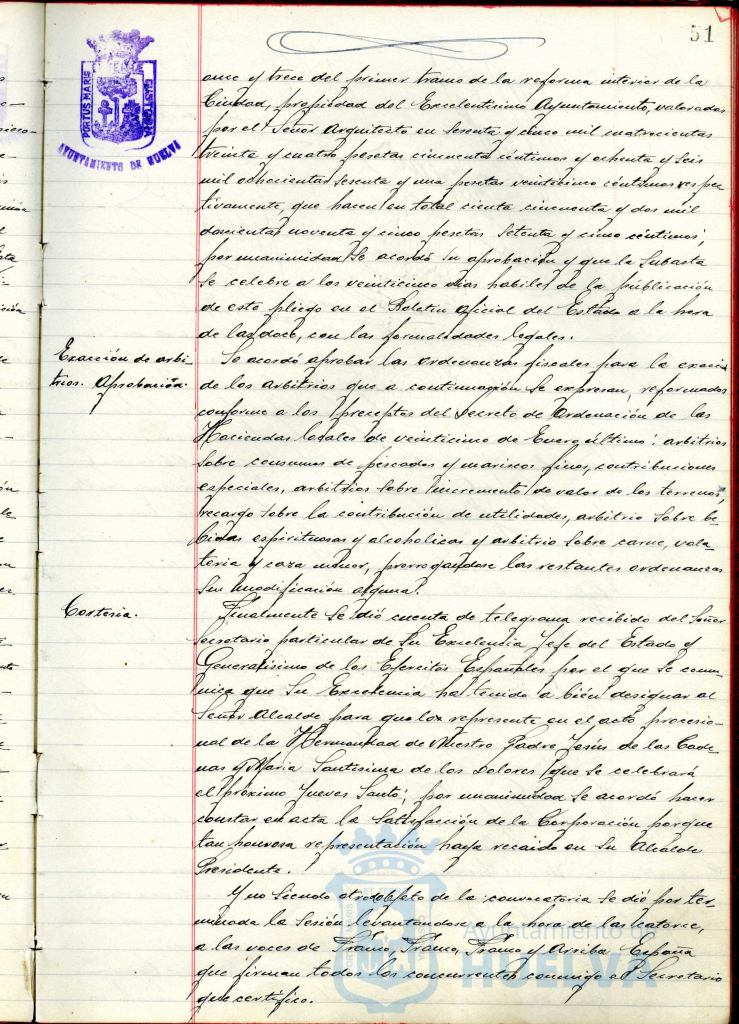 51
PORTUS MARIS ET TERRÆ CUSTODIA
AYUNTAMIENTO DE HUELVA
once y trece del primer tramo de la reforma interior de la
Ciudad, propiedad del Excelentísimo Ayuntamiento, valorados
por el Señor Arquitecto en sesenta y cinco mil cuatrocientas
treinta y cuatro pesetas cincuenta céntimos y ochenta y seis
mil ochocientas sesenta y una pesetas veinticinco céntimos respec-
tivamente, que hacen en total ciento cincuenta y dos mil
doscientas noventa y cinco pesetas setenta y cinco céntimos;
por unanimidad se acordó su aprobación y que la subasta
se celebre a los veinticinco días habiles de la publicación
de este pliego en el Boletín oficial del Estado a la hora
de las doce, con las formalidades legales.
Exacción de arbi-
trios. Aprobación.
Se acordó aprobar las ordenanzas fiscales para la exacción
de los arbitrios que a continuación se expresan, reformados
conforme a los preceptos del Decreto de Ordenación de las
Haciendas locales de veinticinco de Enero último: arbitrios
sobre consumos de pescados y mariscos finos, contribuciones
especiales, arbitrios sobre incremento de valor de los terrenos,
recargo sobre la contribución de utilidades, arbitrio sobre be-
bidas espirituosas y alcoholicas y arbitrio sobre carne, vola-
teria y caza menor, prorrogandose las restantes ordenanzas
sin modificación alguna.
Cortesia.
Finalmente se dió cuenta de telegrama recibido del Señor
Secretario particular de Su Excelencia Jefe del Estado y
Generalísimo de los Ejercitos Españoles por el que se comu-
nica que Su Excelencia ha tenido a bién designar al
Señor Alcalde para que lo represente en el acto procesio-
nal de la Hermandad de Nuestro Padre Jesús de las Cade-
nas y María Santisima de los Dolores que se celebrará
el próximo Jueves Santo; por unanimidad se acordó hacer
constar en acta la satisfacción de la Corporación porque
tan honrosa representación haya recaido en su Alcalde
Presidente.
Y no siendo otro objeto de la convocatoria se dió por ter-
minada la sesión levantandose a la hora de las catorce,
a las voces de Franco, Franco, Franco y Arriba España
que firman todos los concurrentes conmigo el Secretario
que certifico.
Ayuntamiento de
HUELVA